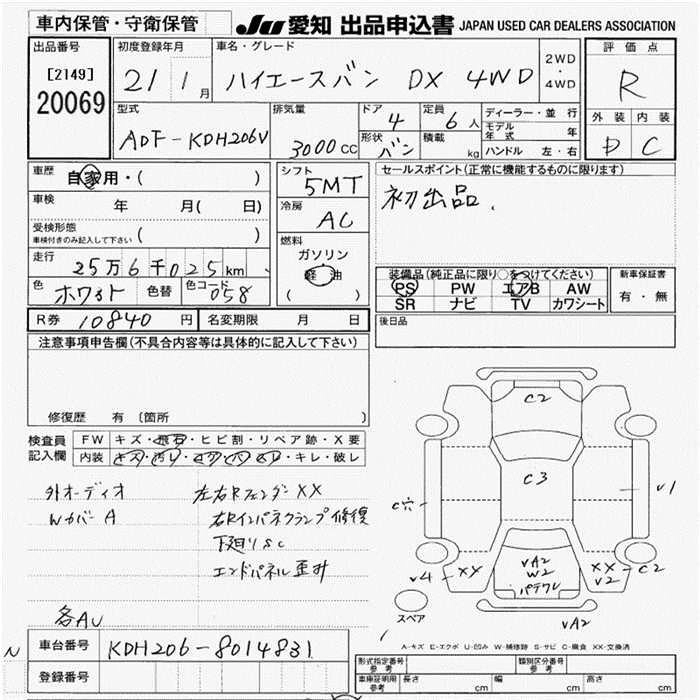 車内保管・守衛保管
JU 愛知 出品申込書 JAPAN USED CAR DEALERS ASSOCIATION
出品番号 初度登録年月 車名・グレード 評価点
[2149] 21 1月 ハイエースバン DX 4WD 2WD・4WD R
20069
型式 排気量 ドア 4 定員 6人 ディーラー・並行 外装 内装
ADF-KDH206V 3000CC 形状 バン 積載 kg モデル年式 年 D C
ハンドル 左・右
車歴 自家用・( ) シフト 5MT セールスポイント(正常に機能するものに限ります)
車検 年 月( 日) 冷房 AC 初出品.
受検形態
車検付きのみ記入して下さい ( )
燃料 ガソリン
軽油
( )
走行 25万6千025km
装備品(純正品に限り○をつけてください) 新車保証書
色 ホワイト 色替 色コード 058 PS PW エアB AW 有・無
SR ナビ TV カワシート
R券 10840円 名変期限 月 日 後日品
注意事項申告欄(不具合内容等は具体的に記入して下さい)
修復歴 有 〔箇所 〕
検査員記入欄 FW キズ・飛石・ヒビ割・リペア跡・X要
内装 キズ・汚レ・コゲ・穴・ ・キレ・破レ
外オーディオ 左右Rフェンダー XX
Wカバー A 右Rインパネクランプ修復
下廻りSC
エンドパネル歪み
各AU
C2
C3
C穴 V1
V4 XY VA2 W2 パテワレ XX V2 C2
スペア VA2
A-キズ E-エクボ U-凹み W-補修跡 S-サビ C-腐食 XX-交換済
N 車台番号 KDH206-8014831
登録番号
形式指定番号 参考 類別区分番号 参考
車庫証明用 参考 長さ cm 幅 cm 高さ cm